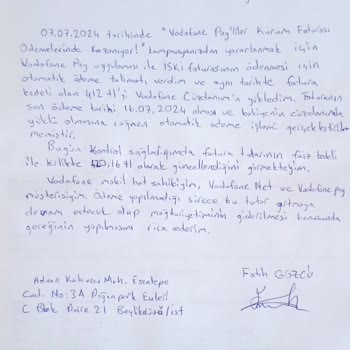 07.07.2024 tarihinde "Vodafone Pay'liler Kurum Faturası
Ödemelerinde Kazanıyor!" kampanyanızdan yararlanmak için
Vodafone Pay uygulaması ile İSKİ faturasının ödenmesi için
otomatik ödeme talimatı verdim ve aynı tarihte fatura
bedeli olan 412 tl'yi Vodafone Cüzdanım'a yükledim. Faturanın
son ödeme tarihi 16.07.2024 olması ve bakiyenin cüzdanımda
yüklü olmasına rağmen otomatik ödeme işlemi gerçekleştirilme
memiştir.
Bugün kontrol sağladığımda fatura tutarının faiz
ile birlikte olarak güncellendiğini görmekteyim.
Vodafone mobil hat sahibiyim, Vodafone Net ve Vodafone pay
müşterisiyim. Ödeme yapılmadığı sürece bu tutar artmaya
devam edecek olup mağduriyetimin giderilmesi konusunda
gereğinin yapılmasını rica ederim.
Fatih GÖZCÜ
Adnan Kahveci Mah. Esentepe
Cad. No: 3A Doğapark Evleri
C Blok Daire 21 Beylikdüzü/ist